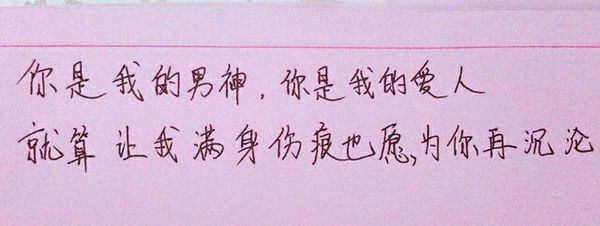 你是我的男神，你是我的爱人
就算让我满身伤痕也愿，为你再沉沦